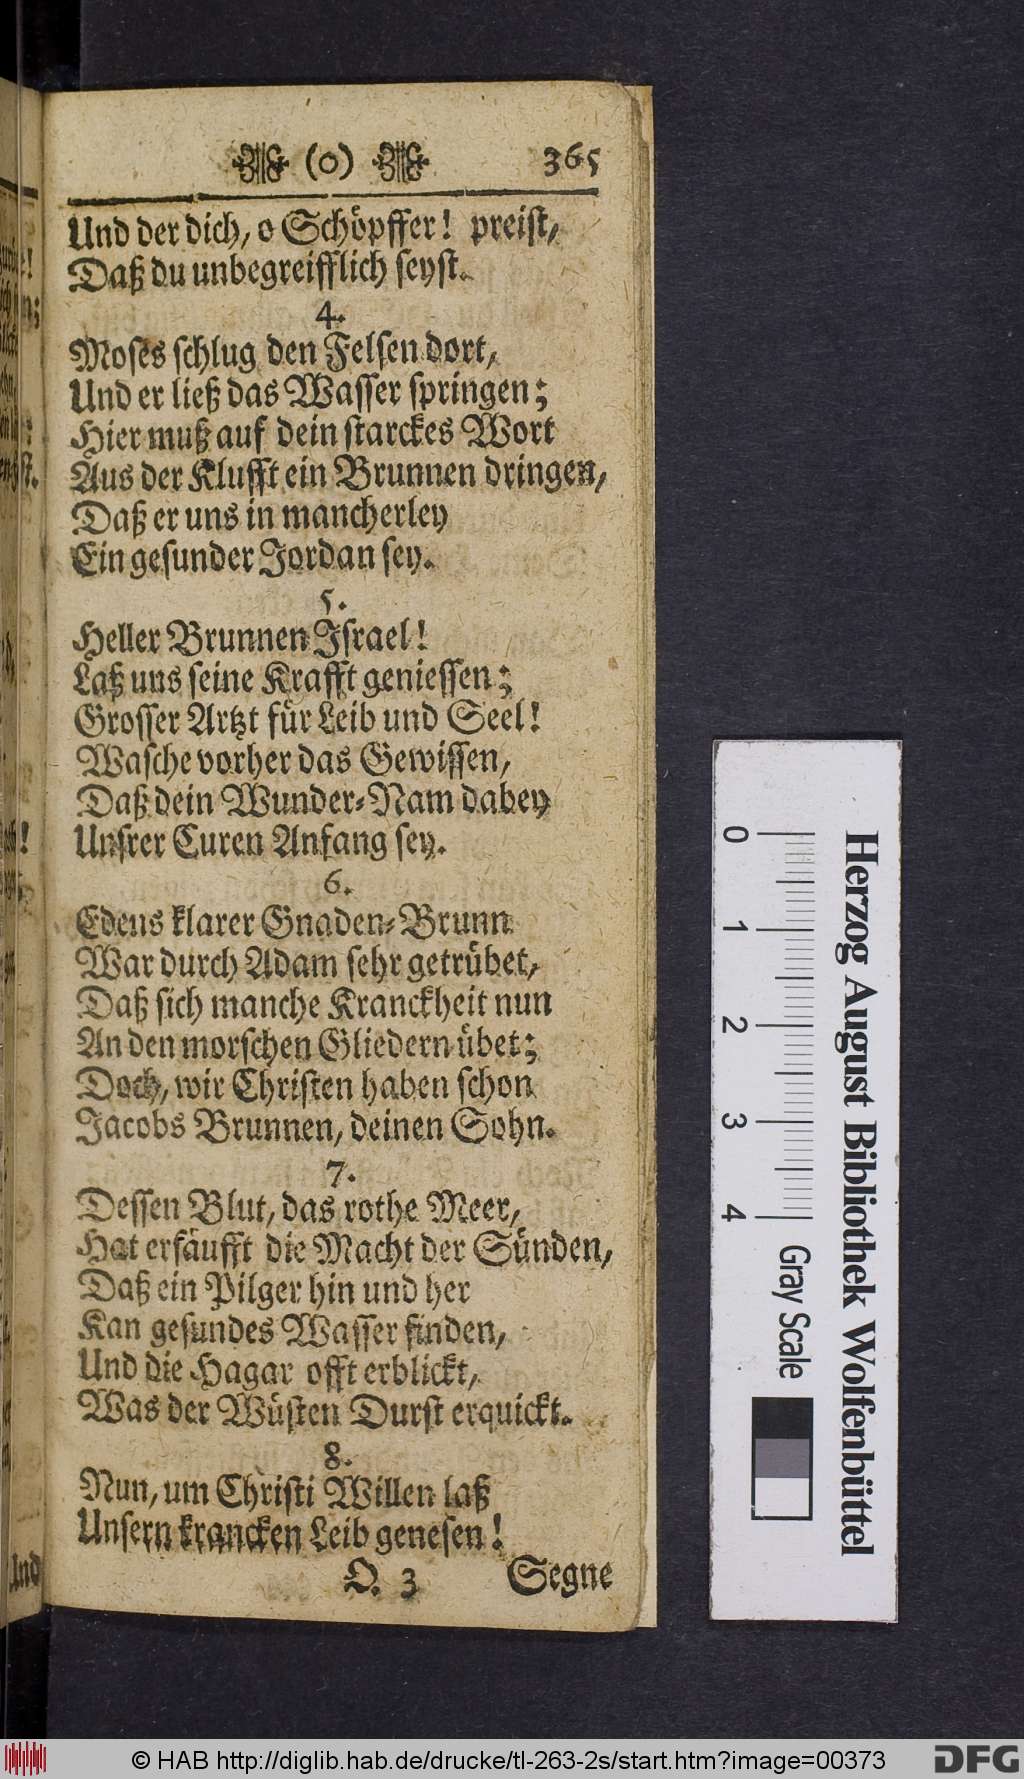 (o) 365
Und der dich, o Schöpffer! preist,
Daß du unbegreifflich seyst.
4.
Moses schlug den Felsen dort,
Und er ließ das Wasser springen;
Hier muß auf dein starckes Wort
Aus der Klufft ein Brunnen dringen,
Daß er uns in mancherley
Ein gesunder Jordan sey.
5.
Heller Brunnen Israel!
Laß uns seine Krafft geniessen;
Grosser Artzt für Leib und Seel!
Wasche vorher das Gewissen,
Daß dein Wunder-Nam dabey
Unsrer Curen Anfang sey.
6.
Edens klarer Gnaden-Brunn
War durch Adam sehr getrübet,
Daß sich manche Kranckheit nun
An den morschen Gliedern übet;
Doch, wir Christen haben schon
Jacobs Brunnen, deinen Sohn.
7.
Dessen Blut, das rothe Meer,
Hat ersäufft die Macht der Sünden,
Daß ein Pilger hin und her
Kan gesundes Wasser finden,
Und die Hagar offt erblickt,
Was der Wüsten Durst erquickt.
8.
Nun, um Christi Willen laß
Unsern krancken Leib genesen!
Q. 3 Segne
Und
0 1 2 3 4 Gray Scale
Herzog August Bibliothek Wolfenbüttel
© HAB http://diglib.hab.de/drucke/tl-263-2s/start.htm?image=00373
DFG